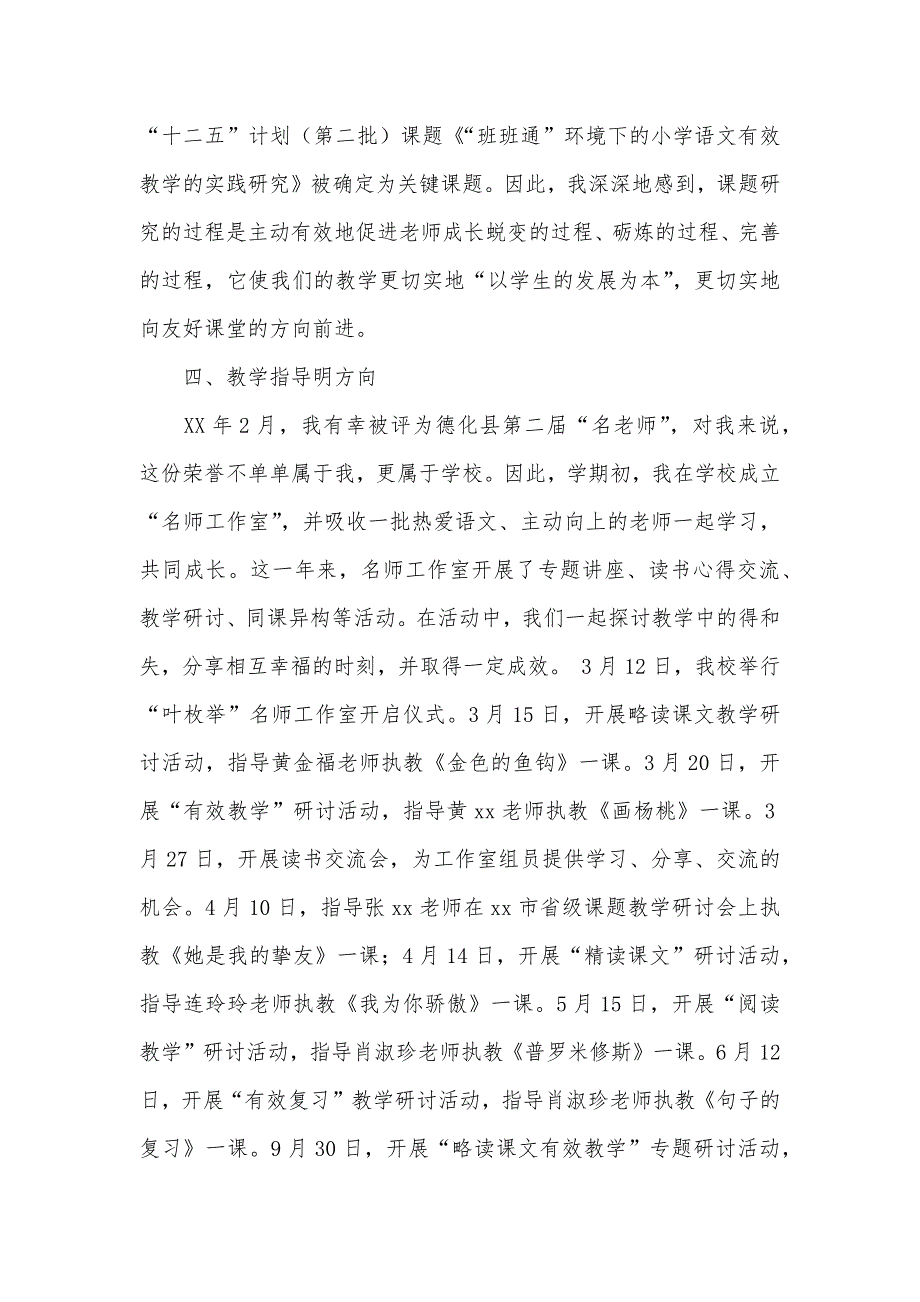 “十二五”计划（第二批）课题《“班班通”环境下的小学语文有效
教学的实践研究》被确定为关键课题。因此，我深深地感到，课题研
究的过程是主动有效地促进老师成长蜕变的过程、砺炼的过程、完善
的过程，它使我们的教学更切实地“以学生的发展为本”，更切实地
向友好课堂的方向前进。
四、教学指导明方向
XX 年 2 月，我有幸被评为德化县第二届“名老师”，对我来说，
这份荣誉不单单属于我，更属于学校。因此，学期初，我在学校成立
“名师工作室”，并吸收一批热爱语文、主动向上的老师一起学习，
共同成长。这一年来，名师工作室开展了专题讲座、读书心得交流、
教学研讨、同课异构等活动。在活动中，我们一起探讨教学中的得和
失，分享相互幸福的时刻，并取得一定成效。 3 月 12 日，我校举行
“叶枚举”名师工作室开启仪式。3 月 15 日，开展略读课文教学研
讨活动，指导黄金福老师执教《金色的鱼钩》一课。3 月 20 日，开
展“有效教学”研讨活动，指导黄 xx 老师执教《画杨桃》一课。3
月 27 日，开展读书交流会，为工作室组员提供学习、分享、交流的
机会。4 月 10 日，指导张 xx 老师在 xx 市省级课题教学研讨会上执
教《她是我的挚友》一课；4 月 14 日，开展“精读课文”研讨活动，
指导连玲玲老师执教《我为你骄傲》一课。5 月 15 日，开展“阅读
教学”研讨活动，指导肖淑珍老师执教《普罗米修斯》一课。6 月 12
日，开展“有效复习”教学研讨活动，指导肖淑珍老师执教《句子的
复习》一课。9 月 30 日，开展“略读课文有效教学”专题研讨活动，